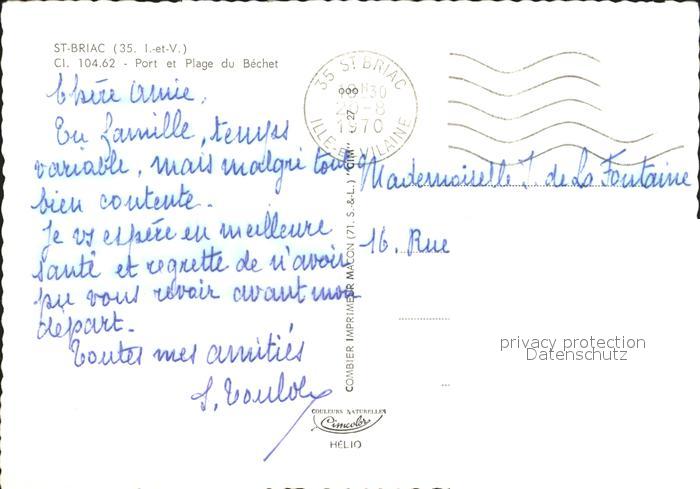 ST-BRIAC (35. I.-et-V.)
Cl. 104.62 - Port et Plage du Béchet
Chère Amie,
En famille, temps
variable, mais malgré tout
bien contente.
Je vs espère en meilleure
santé et regrette de n'avoir
pu vous revoir avant mon
départ.
Toutes mes amitiés
35 ST BRIAC
18H30
26-8
1970
ILLE-ET-VILAINE
COMBIER IMPRIMEUR MACON (71. S.-&-L.) "CIM"
Mademoiselle J. de La Fontaine
16. Rue
privacy protection
Datenschutz
COULEURS NATURELLES
Cimcolor
HÉLIO